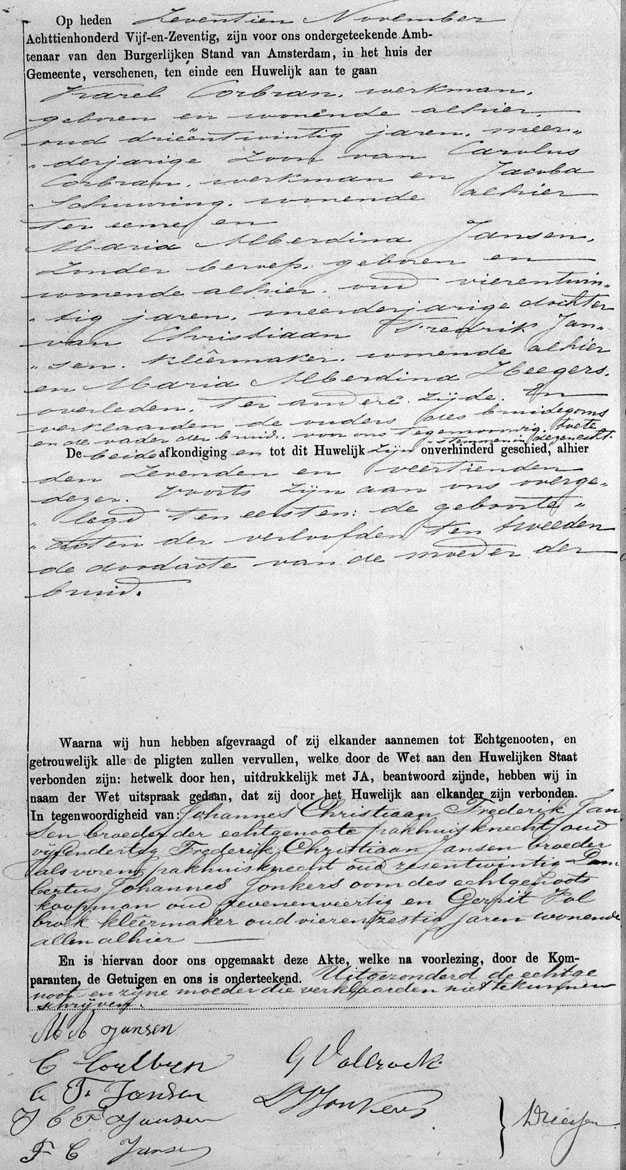 Op heden Zeventien November
Achttienhonderd Vijf-en-Zeventig, zijn voor ons ondergeteekende Amb-
tenaar van den Burgerlijken Stand van Amsterdam, in het huis der
Gemeente, verschenen, ten einde een Huwelijk aan te gaan
Karel Corbran, werkman,
geboren en wonende alhier,
oud drieëntwintig jaren, meer-
"derjarige zoon van Carolus
Corbran, werkman en Jacoba
Schuuring, wonende alhier
ter eene, en
Maria Alberdina Jansen,
zonder beroep, geboren en
wonende alhier, oud vierentwin-
"tig jaren, meerderjarige dochter
van Christiaan Fredrik Jan-
"sen, kleêrmaker, wonende alhier
en Maria Alberdina Heegers,
overleden, ter andere zijde. En
verklaarden de ouders des bruidegoms
en de vader der bruid, voor ons tegenwoordig, hunne
toestemming in deze echt.
De beide afkondigingen tot dit Huwelijk zijn onverhinderd geschied, alhier
den zevenden en veertienden
dezer. Voorts zijn aan ons overge-
"legd ten eersten: de geboorte-
"akten der verloofden ten tweeden
de doodacte van de moeder der
bruid.
Waarna wij hun hebben afgevraagd of zij elkander aannemen tot Echtgenooten, en
getrouwelijk alle de pligten zullen vervullen, welke door de Wet aan den Huwelijken Staat
verbonden zijn: hetwelk door hen, uitdrukkelijk met JA, beantwoord zijnde, hebben wij in
naam der Wet uitspraak gedaan, dat zij door het Huwelijk aan elkander zijn verbonden.
In tegenwoordigheid van: Johannes Christiaan Frederik Jan
sen broeder der echtgenoote pakhuisknecht oud
vijfendertig Frederik Christiaan Jansen broeder
als voren pakhuisknecht oud zesentwintig Lam
bertus Johannes Jonkers oom des echtgenoots
koopman oud zevenenveertig en Gerrit Vol
broek kleermaker oud vierenzestig jaren wonende
allen alhier
En is hiervan door ons opgemaakt deze Akte, welke na voorlezing, door de Kom-
paranten, de Getuigen en ons is onderteekend. Uitgezonderd de echtge
noot en zijne moeder die verklaarden niet te kunnen
schrijven.
M A Jansen
C Corbran
G Volbroek
C F Jansen
L J Jonkers
J C F Jansen
F C Jansen